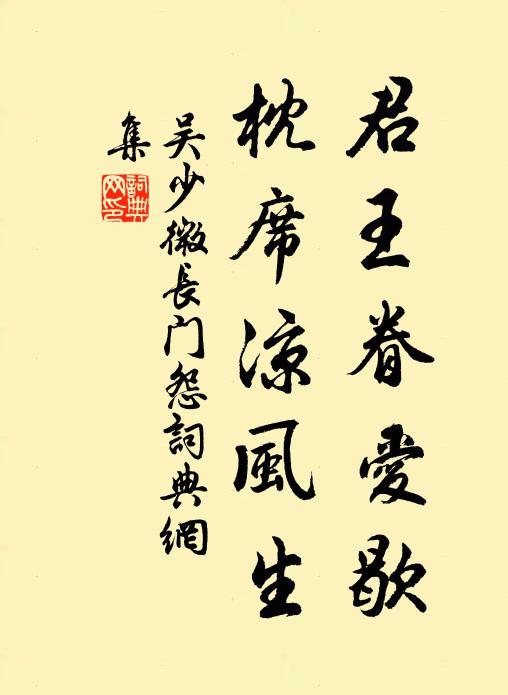 君王眷愛歇
枕席涼風生
吳少微長門怨詞典網
集
詞典
网印